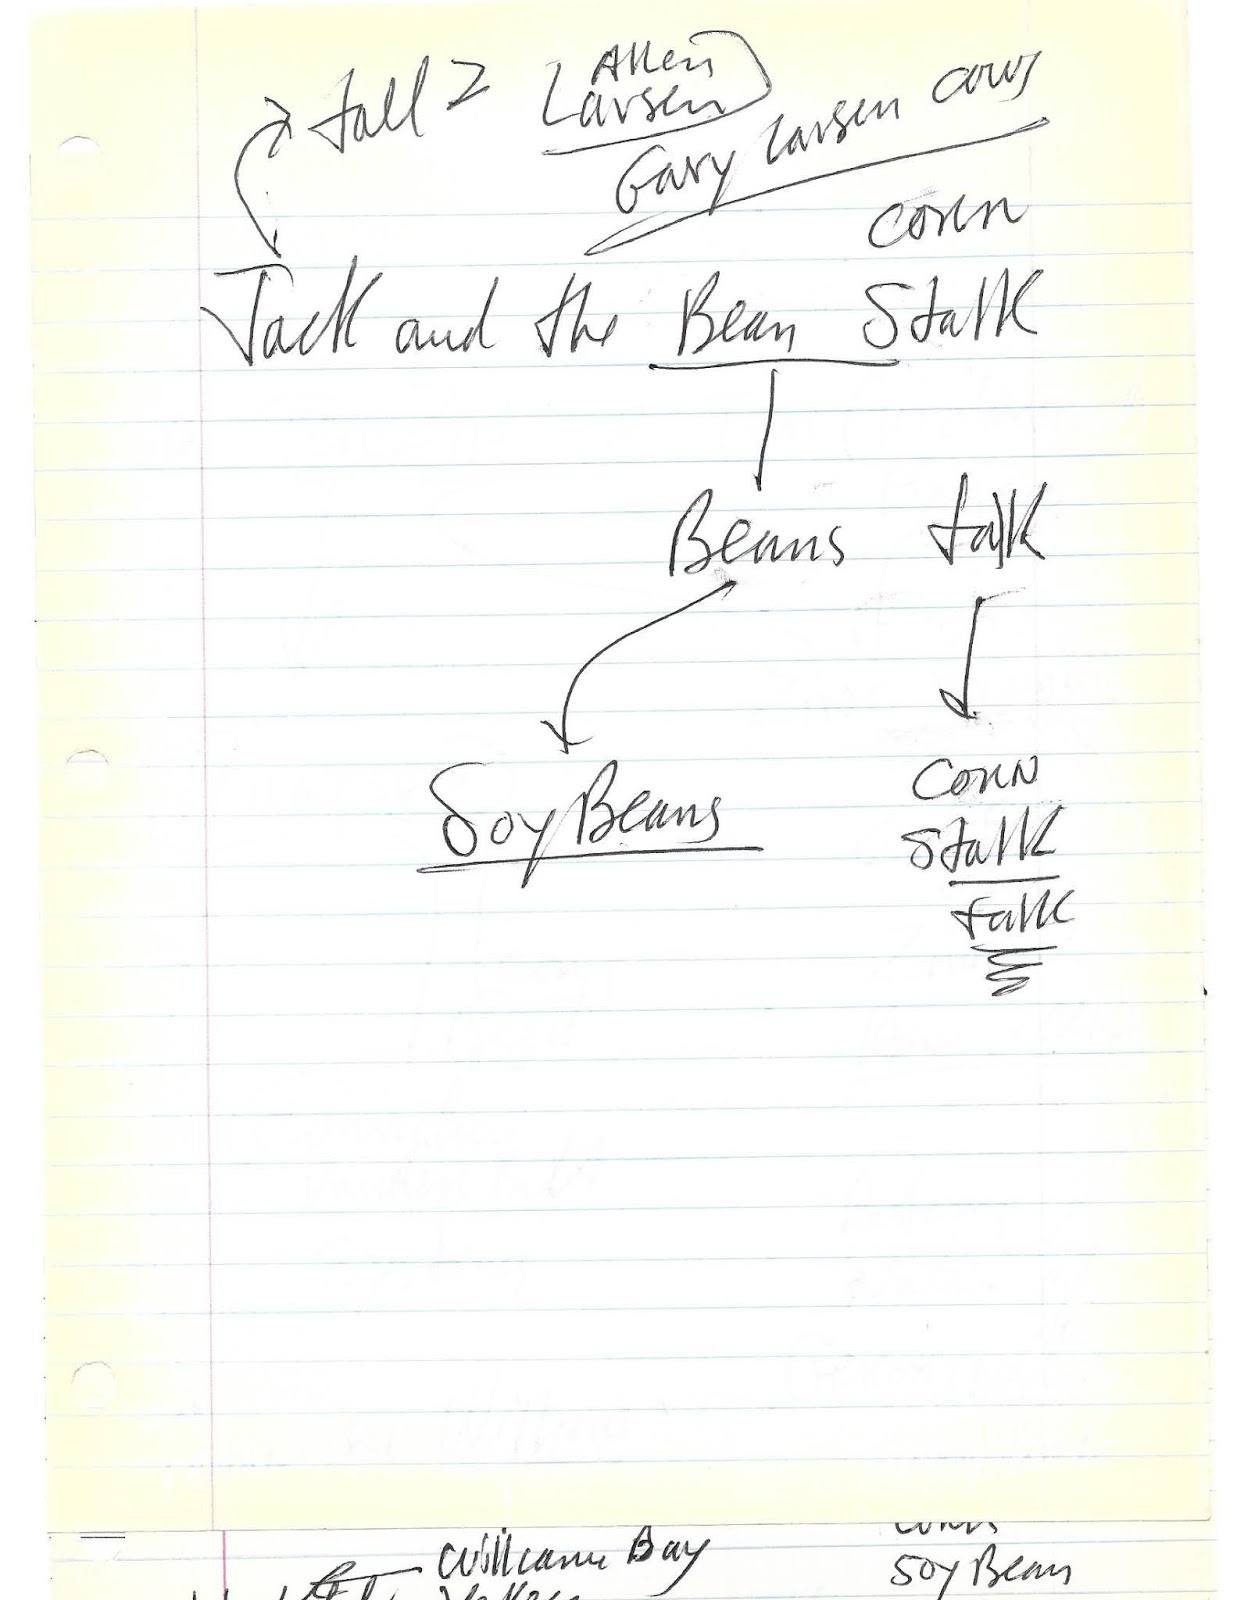 tall Allen
Larsen
Gary Larsen cows
corn
Jack and the Bean Stalk
Beans talk
Soy Beans
corn
Stalk
talk
William Bay
Soy Beans